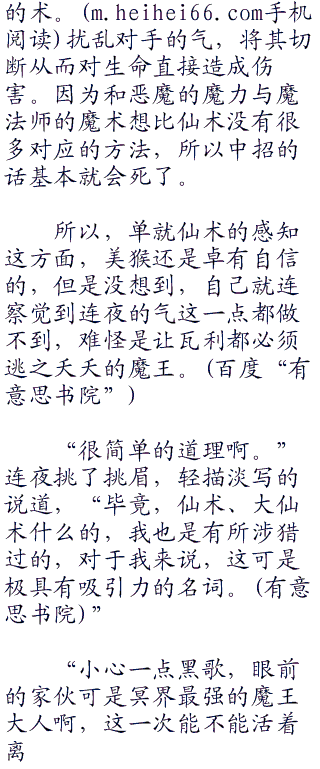 的术。(m.heihei66.com手机
阅读)扰乱对手的气，将其切
断从而对生命直接造成伤
害。因为和恶魔的魔力与魔
法师的魔术想比仙术没有很
多对应的方法，所以中招的
话基本就会死了。
所以，单就仙术的感知
这方面，美猴还是卓有自信
的，但是没想到，自己就连
察觉到连夜的气这一点都做
不到，难怪是让瓦利都必须
逃之夭夭的魔王。(百度“有
意思书院”)
“很简单的道理啊。”
连夜挑了挑眉，轻描淡写的
说道，“毕竟，仙术、大仙
术什么的，我也是有所涉猎
过的，对于我来说，这可是
极具有吸引力的名词。(有意
思书院)”
“小心一点黑歌，眼前
的家伙可是冥界最强的魔王
大人啊，这一次能不能活着
离